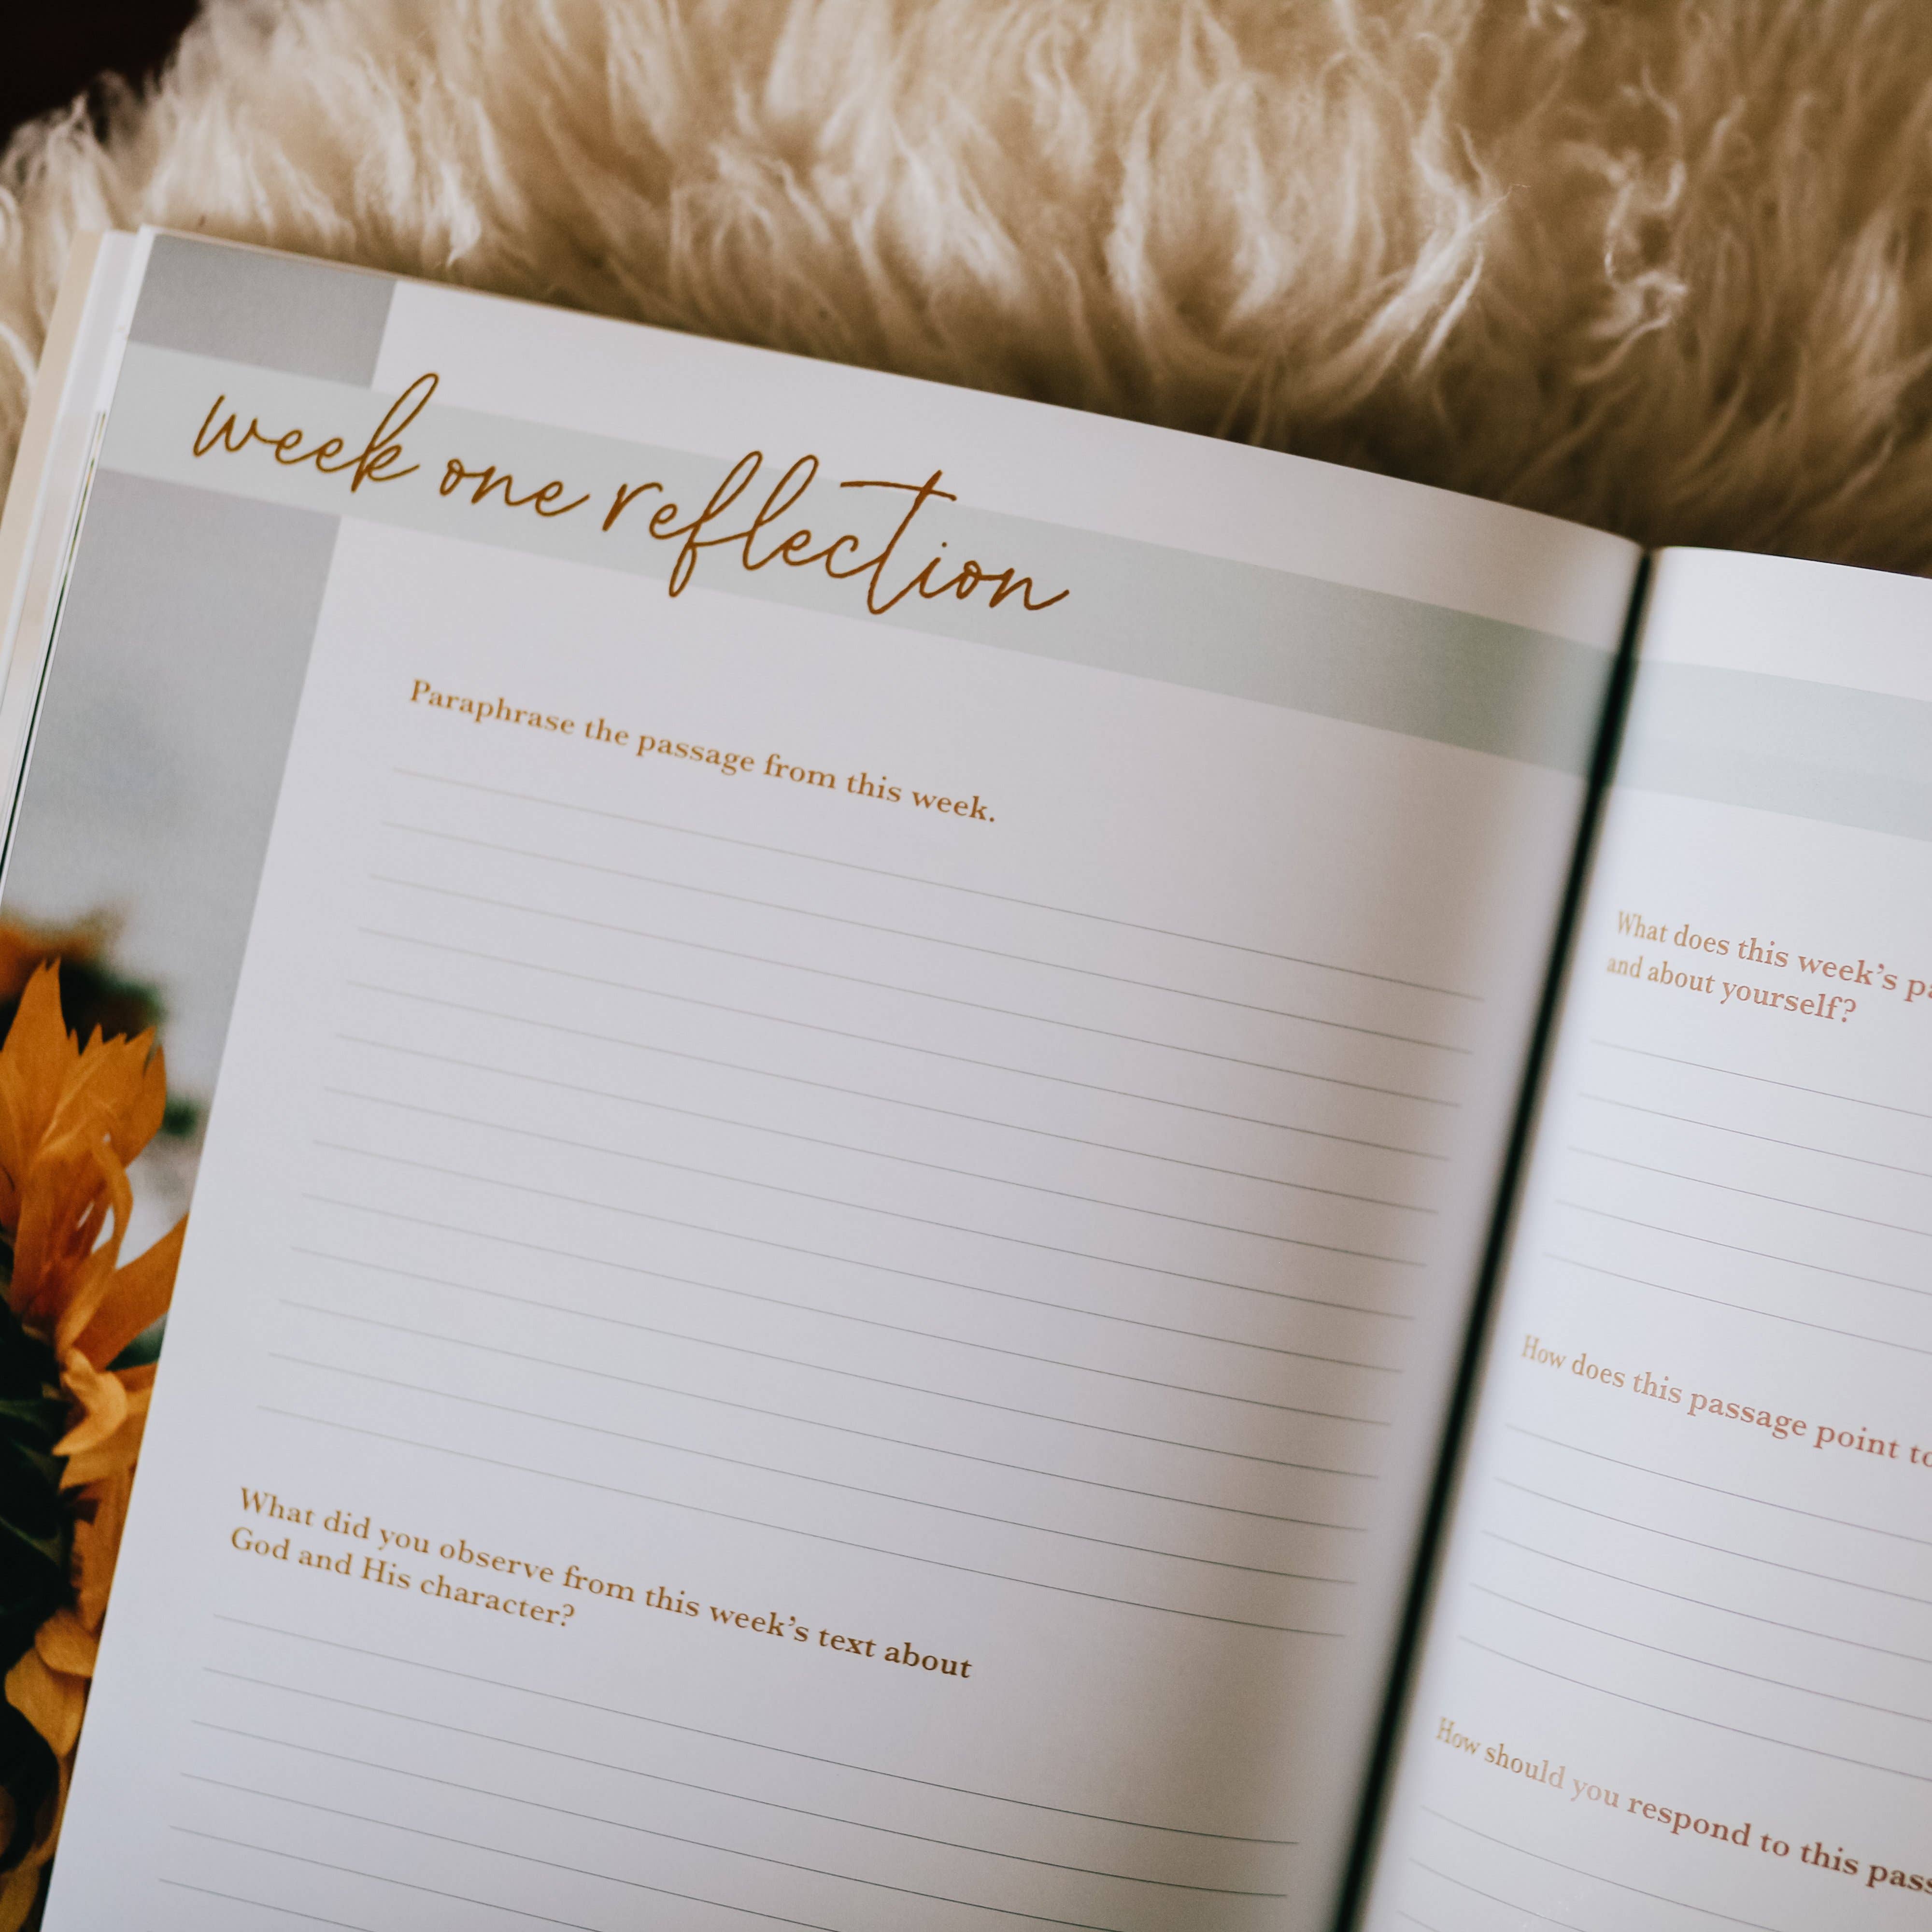 week one reflection
Paraphrase the passage from this week.
What did you observe from this week's text about
God and His character?
What does this week's
and about yourself?
How does this passage point to
How should you respond to this